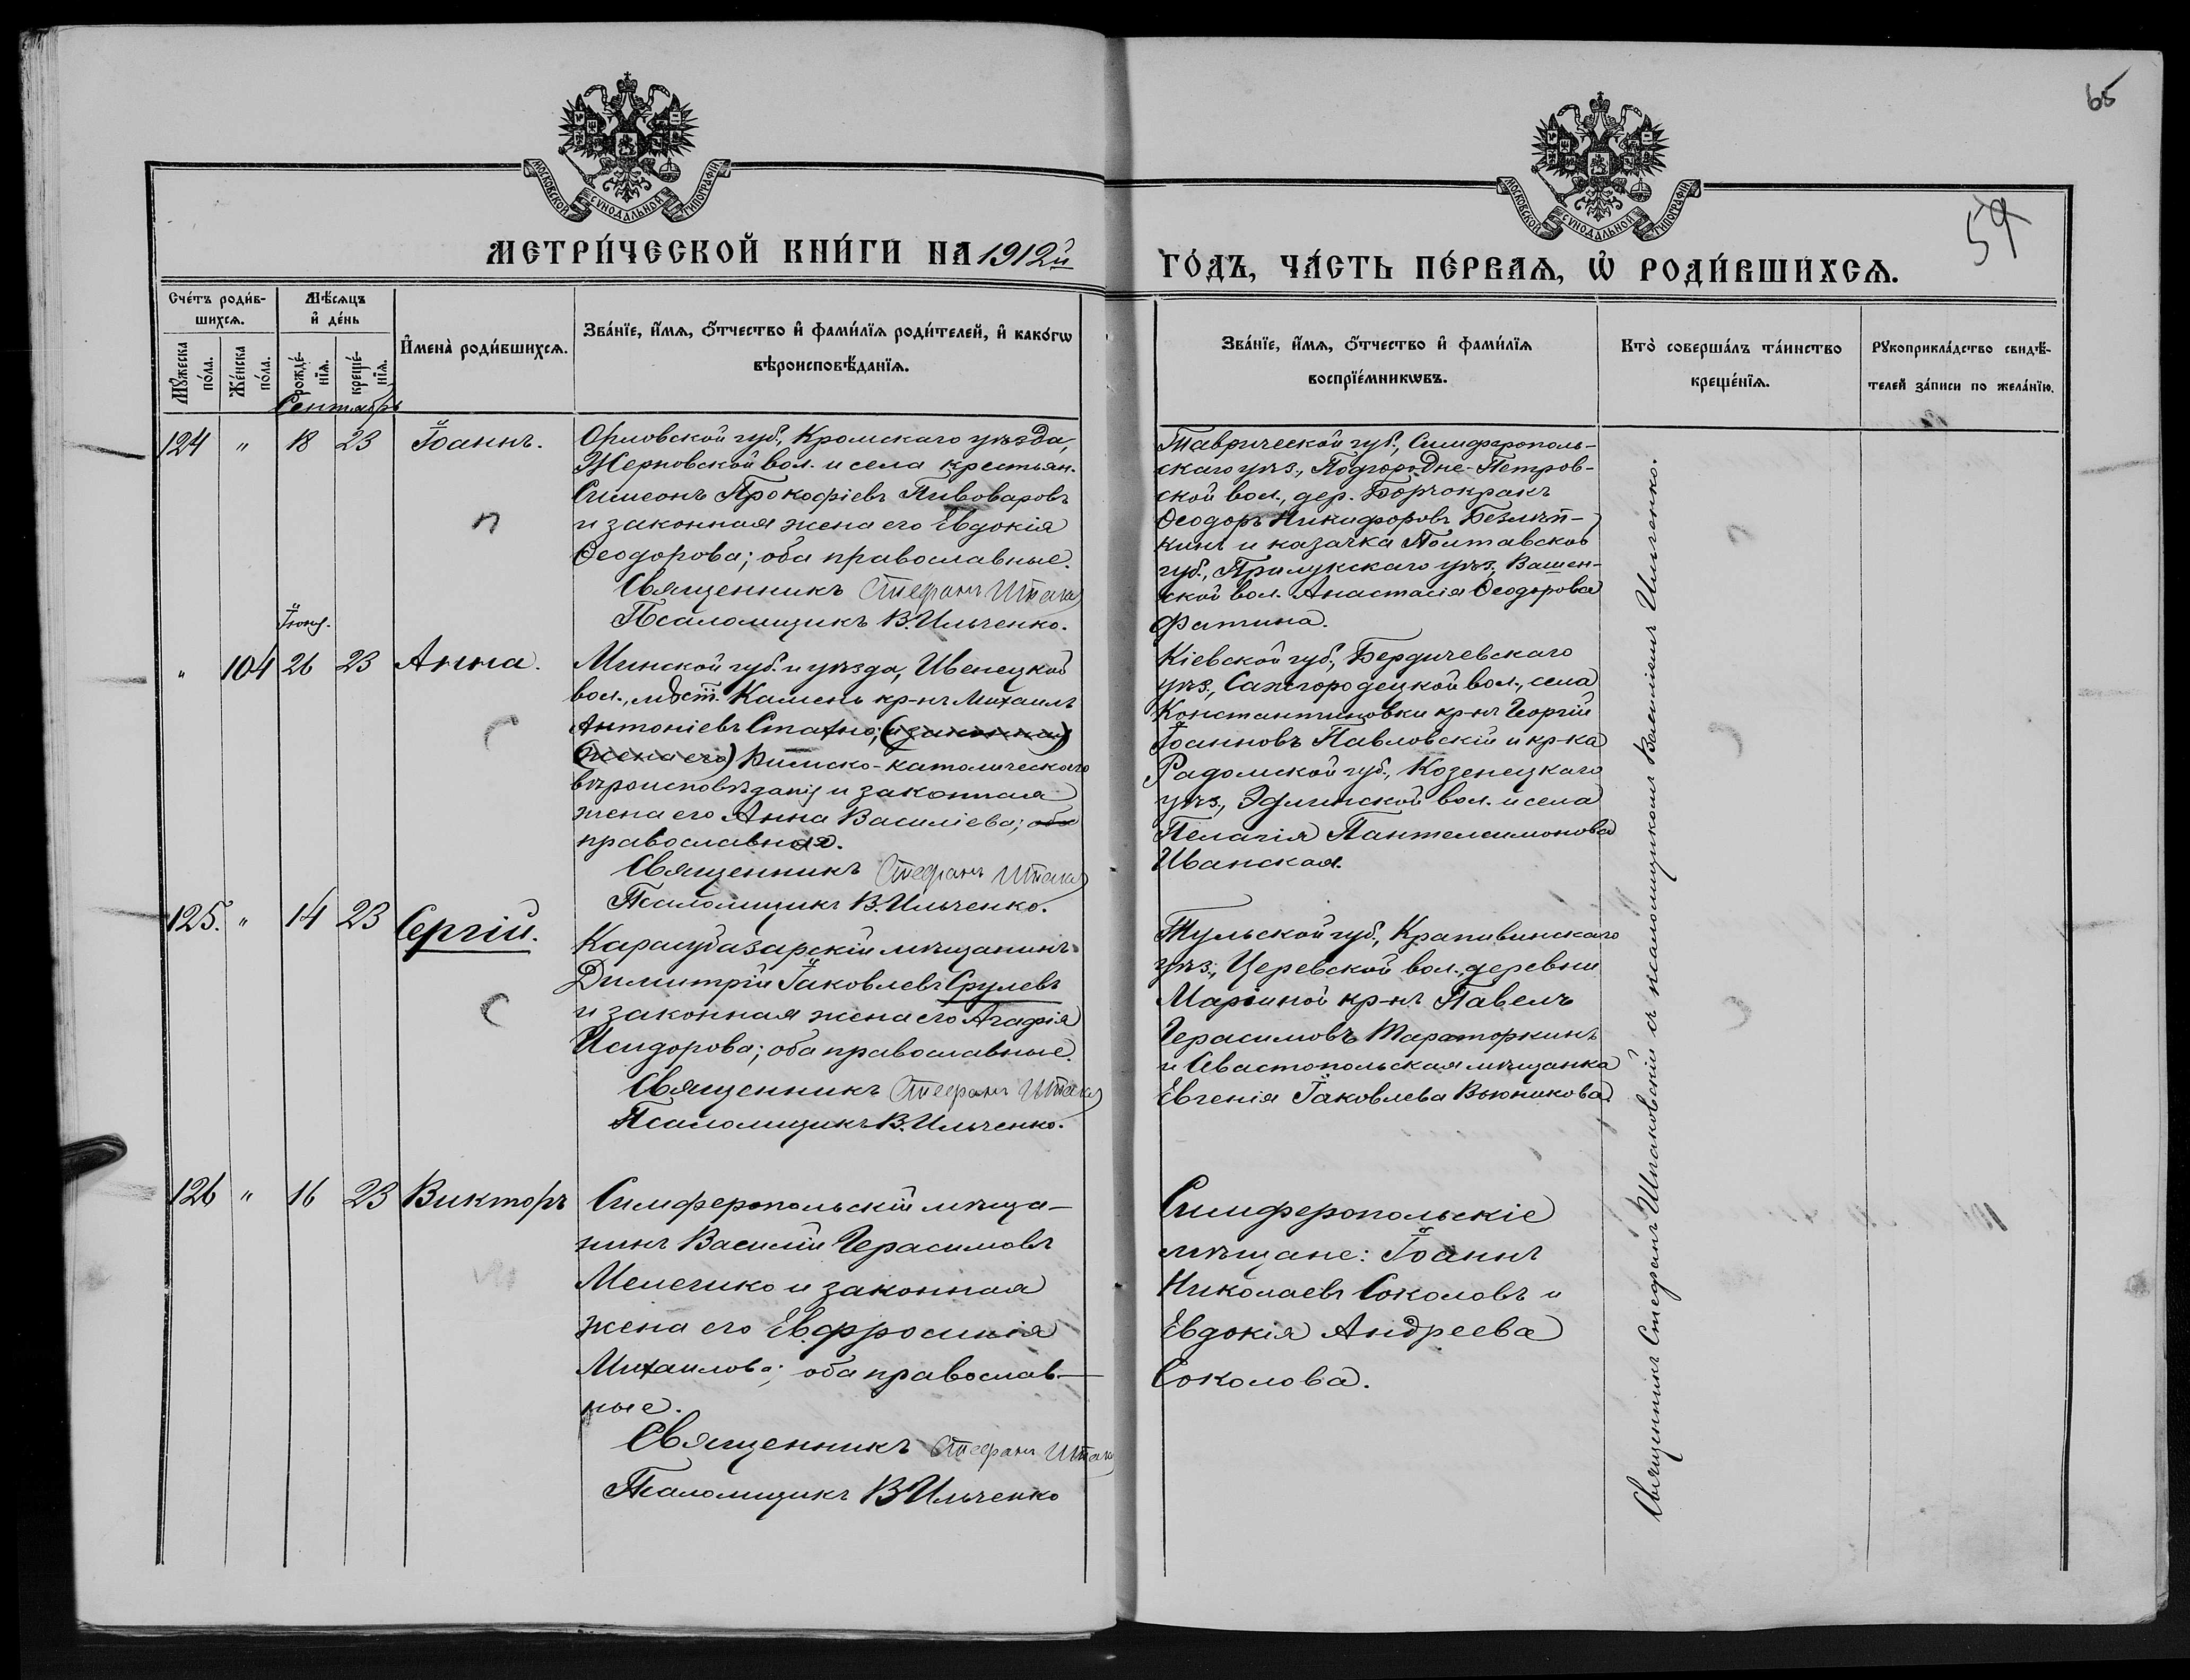 65
59
МОСКОВСКОЙ СУНОДАЛЬНОЙ ТИПОГРАФІИ
МОСКОВСКОЙ СУНОДАЛЬНОЙ ТИПОГРАФІИ
МЕТРИ́ЧЕСКОЙ КНИ́ГИ НА 1912й
ГО́ДЪ, ЧА́СТЬ ПЕ́РВАѦ, Ѽ РОДИ́ВШИХСѦ.
Сче́тъ роди́в-
шихсѧ.
Мꙋ́жеска
по́ла.
Же́нска
по́ла.
Мѣ́сѧцъ
и҆ де́нь
рожде́-
нїѧ.
креще́-
нїѧ.
И҆мена̀ роди́вшихсѧ.
Зва́нїе, и҆́мѧ, ѻ҆́тчество и҆ фами́лїѧ роди́телей, и҆ како́гѡ
вѣроисповѣ́данїѧ.
Зва́нїе, и҆́мѧ, ѻ҆́тчество и҆ фами́лїѧ
воспрїе́мникѡвъ.
Кто̀ соверша́лъ та́инство
креще́нїѧ.
Рꙋкоприкла́дство свидѣ́-
телей за́писи по жела́нїю.
Сентябрь
124 " 18 23 Іоаннъ.
Орловской губ., Кромскаго уѣзда,
Жерновской вол. и села крестьян.
Симеонъ Прокофіевъ Пивоваровъ
и законная жена его Евдокія
Ѳеодорова; оба православные.
Священникъ Стефанъ
Псаломщикъ В. Ильченко.
Таврической губ., Симферополь-
скаго уѣз., Подгородне-Петров-
ской вол., дер.
Ѳеодоръ Никифоровъ
кинъ и казачка Полтавской
губ., Прилукскаго уѣз.,
ской вол. Анастасія Ѳеодорова
Фатина.
Іюнь.
" 104 26 23 Анна.
Минской губ. и уѣзда, Ивенецкой
вол., мѣст. Камень кр-нъ Михаилъ
Антоніевъ Стахно; (и законная
жена его) Римско-католическаго
вѣроисповѣданія и законная
жена его Анна Василіева; оба
православная.
Священникъ Стефанъ
Псаломщикъ В. Ильченко.
Кіевской губ., Бердичевскаго
уѣз., Самгородецкой вол., села
Константиновки кр-нъ Георгій
Іоанновъ Павловскій и кр-ка
Радомской губ., Козенецкаго
уѣз., Эдлинской вол. и села
Пелагія Пантелеимонова
Иванская.
125. " 14 23 Сергій.
Карасубазарскій мѣщанинъ
Димитрій Іаковлевъ Срулевъ
и законная жена его Агафія
Исидорова; оба православные.
Священникъ Стефанъ
Псаломщикъ В. Ильченко.
Тульской губ., Крапивинскаго
уѣз., Церевской вол., деревни
Марьиной кр-нъ Павелъ
Герасимовъ Тараторкинъ
и Севастопольская мѣщанка
Евгенія Іаковлева Вьюникова.
126 " 16 23 Викторъ
Симферопольскій мѣща-
нинъ Василій Герасимовъ
Мелечико и законная
жена его Евфросинія
Михаилова; оба православ-
ные.
Священникъ Стефанъ
Псаломщикъ В Ильченко
Симферопольскіе
мѣщане: Іоаннъ
Николаевъ Соколовъ и
Евдокія Андреева
Соколова.
Священникъ Стефанъ Шпаковскій съ псаломщикомъ Василіемъ Ильченко.